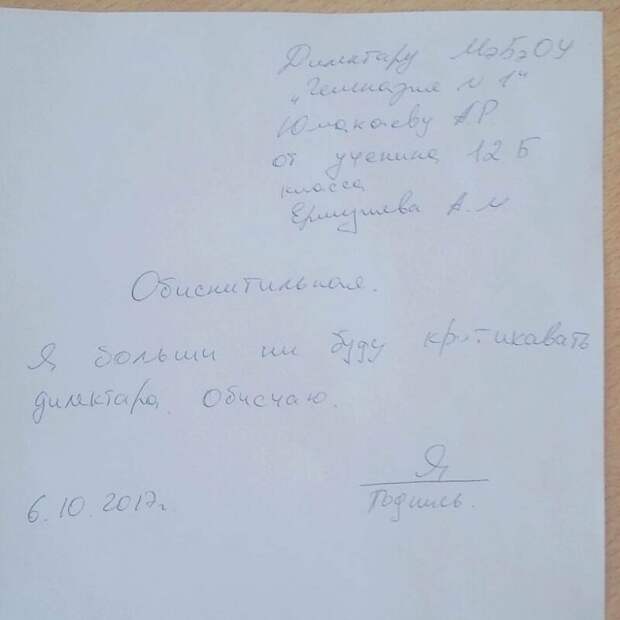 Дилектару МэБэОУ
"Гемназия N 1"
Юмакаеву А.Р
от ученика 12 Б
класса
Ермушева А.М
Обиснитильная.
Я больши ни буду критикавать
дилектара. Обисчаю.
Я
6.10.2017г. Подпись.